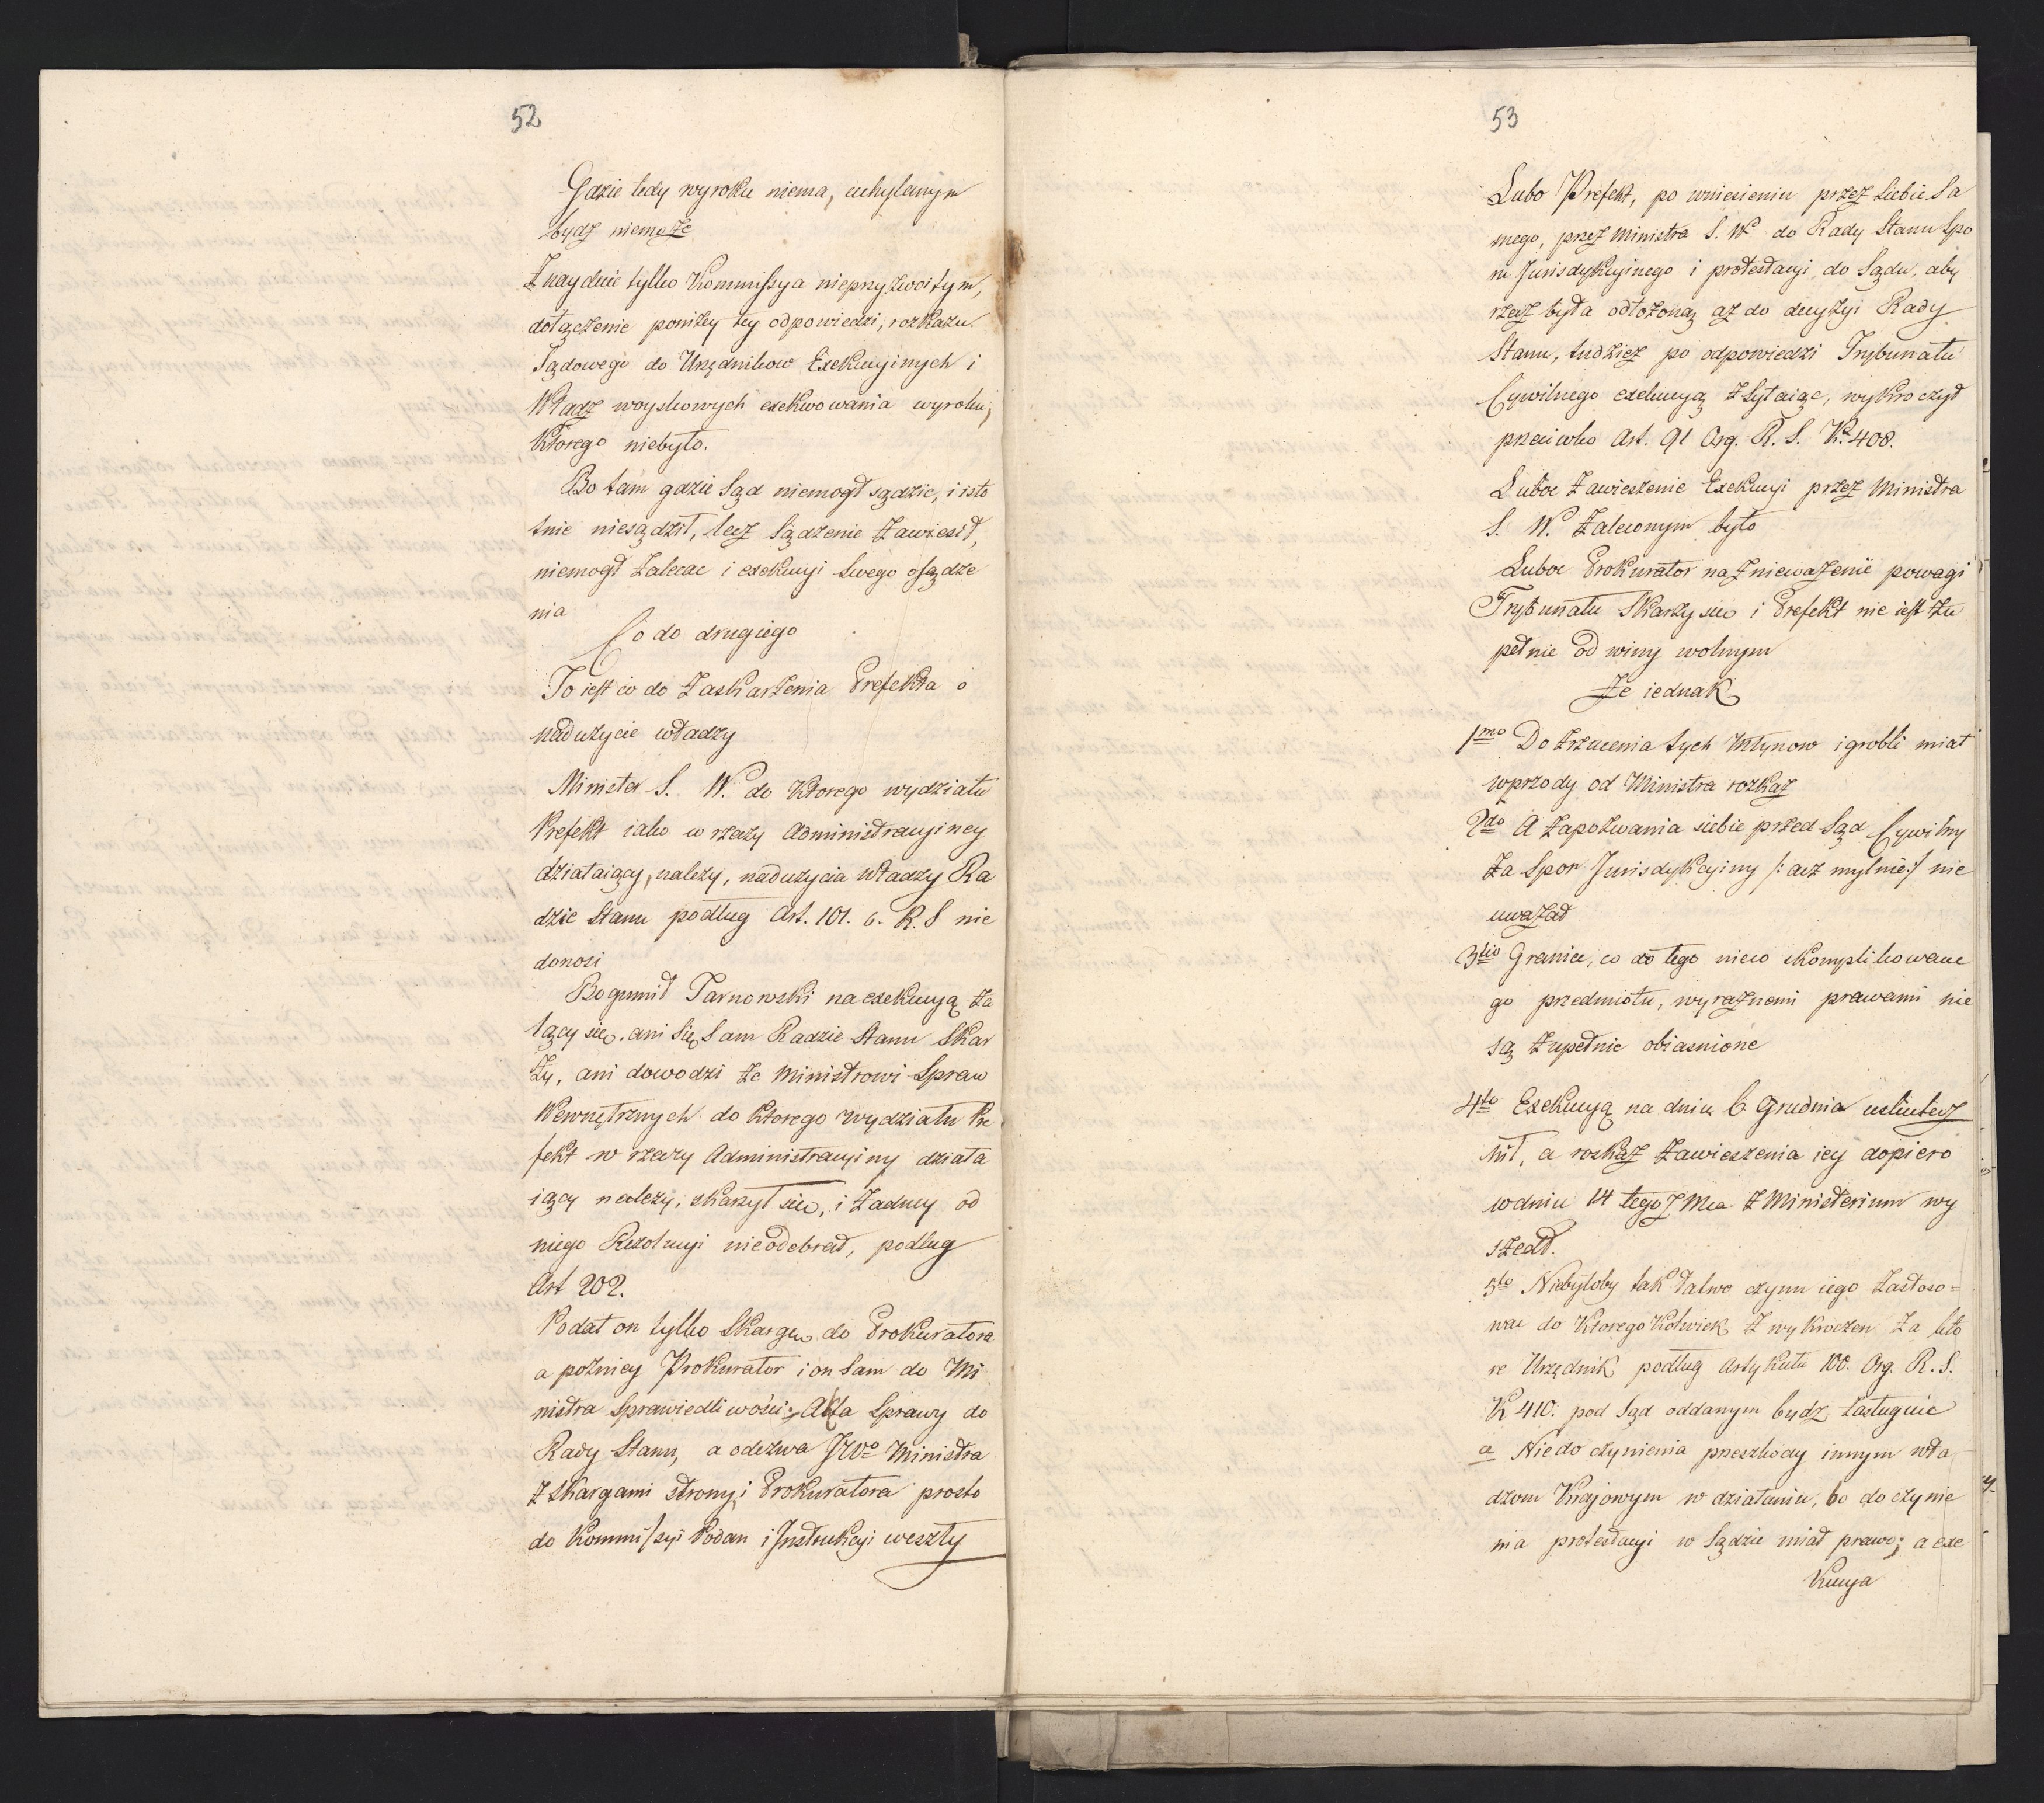 52
Gdzie tedy wyroku niema, uchylanym
bydz niemoże
Znayduie tylko Kommissya nieprzyzwoitym,
dołączenie poniżey tey odpowiedzi, rozkazu
Sądowego do Urzędnikow Exekucyinych i
Władz woyskowych exekwowania wyroku,
Ktorego niebyło.
Bo tam gdzie Sąd niemogł sądzic, i isto
tnie niesądził, lecz Sądzenie zawiesił,
niemogł Zalecac i exekucyi Swego osądze
nia
Co do drugiego
To iest co do Zaskarżenia Prefekta o
nadużycie władzy
Minister S. W. do Ktorego wydziału
Prefekt iako w rzeczy Administracyiney
działaiący, należy, nadużycia władzy Ra
dzie Stanu podług Art. 101. o. R. S nie
donosi
Bogumił Tarnowski na exekucyą Ża
lący się, ani Się Sam Radzie Stanu Skar
ży, ani dowodzi że Ministrowi Spraw
Wewnętrznych do Ktorego wydziału Pre
fekt w rzeczy Administracyiny działa
iący należy, skarżył się, i Żadney od
niego Rezolucyi nieodebrał, podług
Art 202.
Podał on tylko Skargę do Prokuratora
a poźniey Prokurator i on Sam do Mi
nistra Sprawiedliwości; Akta Sprawy do
Rady Stanu, a odezwa JWo Ministra
z skargami strony i Prokuratora prosto
do Kommissyi Podan i Instrukcyi weszły
53
Lubo Prefekt, po wniesieniu przez Siebie Sa
mego, przez Ministra S. W. do Rady Stanu Spo
ru Jurisdykcyinego i protestacyi, do Sądu, aby
rzecz była odłożoną aż do decyzyi Rady
Stanu, tudzież po odpowiedzi Trybunału
Cywilnego exekucyą zsyłaiąc, wykroczył
przeciwko Art. 91 Org. R. S. K. 408.
Luboc Zawieszenie Exekucyi przez Ministra
S. W. Zaleconym było
Luboc Prokurator na Znieważenie powagi
Trybunału Skarży się i Prefekt nie iest Zu
pełnie od winy wolnym
Że iednak
1mo Do Zrzucenia tych Młynow i grobli miał
wprzody od Ministra rozkaz
2do A Zapozwania siebie przed Sąd Cywilny
za Spor Jurisdykcyiny /: acz mylnie :/ nie
uważał
3tio Granice, co do tego nieco skomplikowane
go przedmiotu, wyraźnemi prawami nie
są Zupełnie obiasnione
4to Exekucyą na dniu 6 Grudnia uskutecz
nił, a roskaz Zawieszenia iey dopiero
w dniu 14 tegoż Mca z Ministerium wy
szedł.
5to Niebyłoby tak łatwo czynu iego Zastoso=
wac do KtoregoKolwiek z wykroczen za kto
re Urzędnik podług Artykułu 100. Org. R. S.
K 410. pod Sąd oddanym bydz zasługuie
a Nie do czynienia przeszkody innym wła
dzom Krajowym w działaniu, bo do czynie
nia protestacyi w Sądzie miał prawo; a exe
kucya